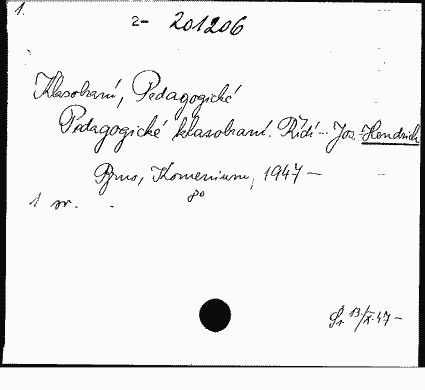 1.
2- 201206
Klasobraní, Pedagogické
Pedagogické klasobraní. Řídí... Jos. Hendrich
Brno, Komenium, 1947 -
8°
1 sv.
Sr 13/X.47 -